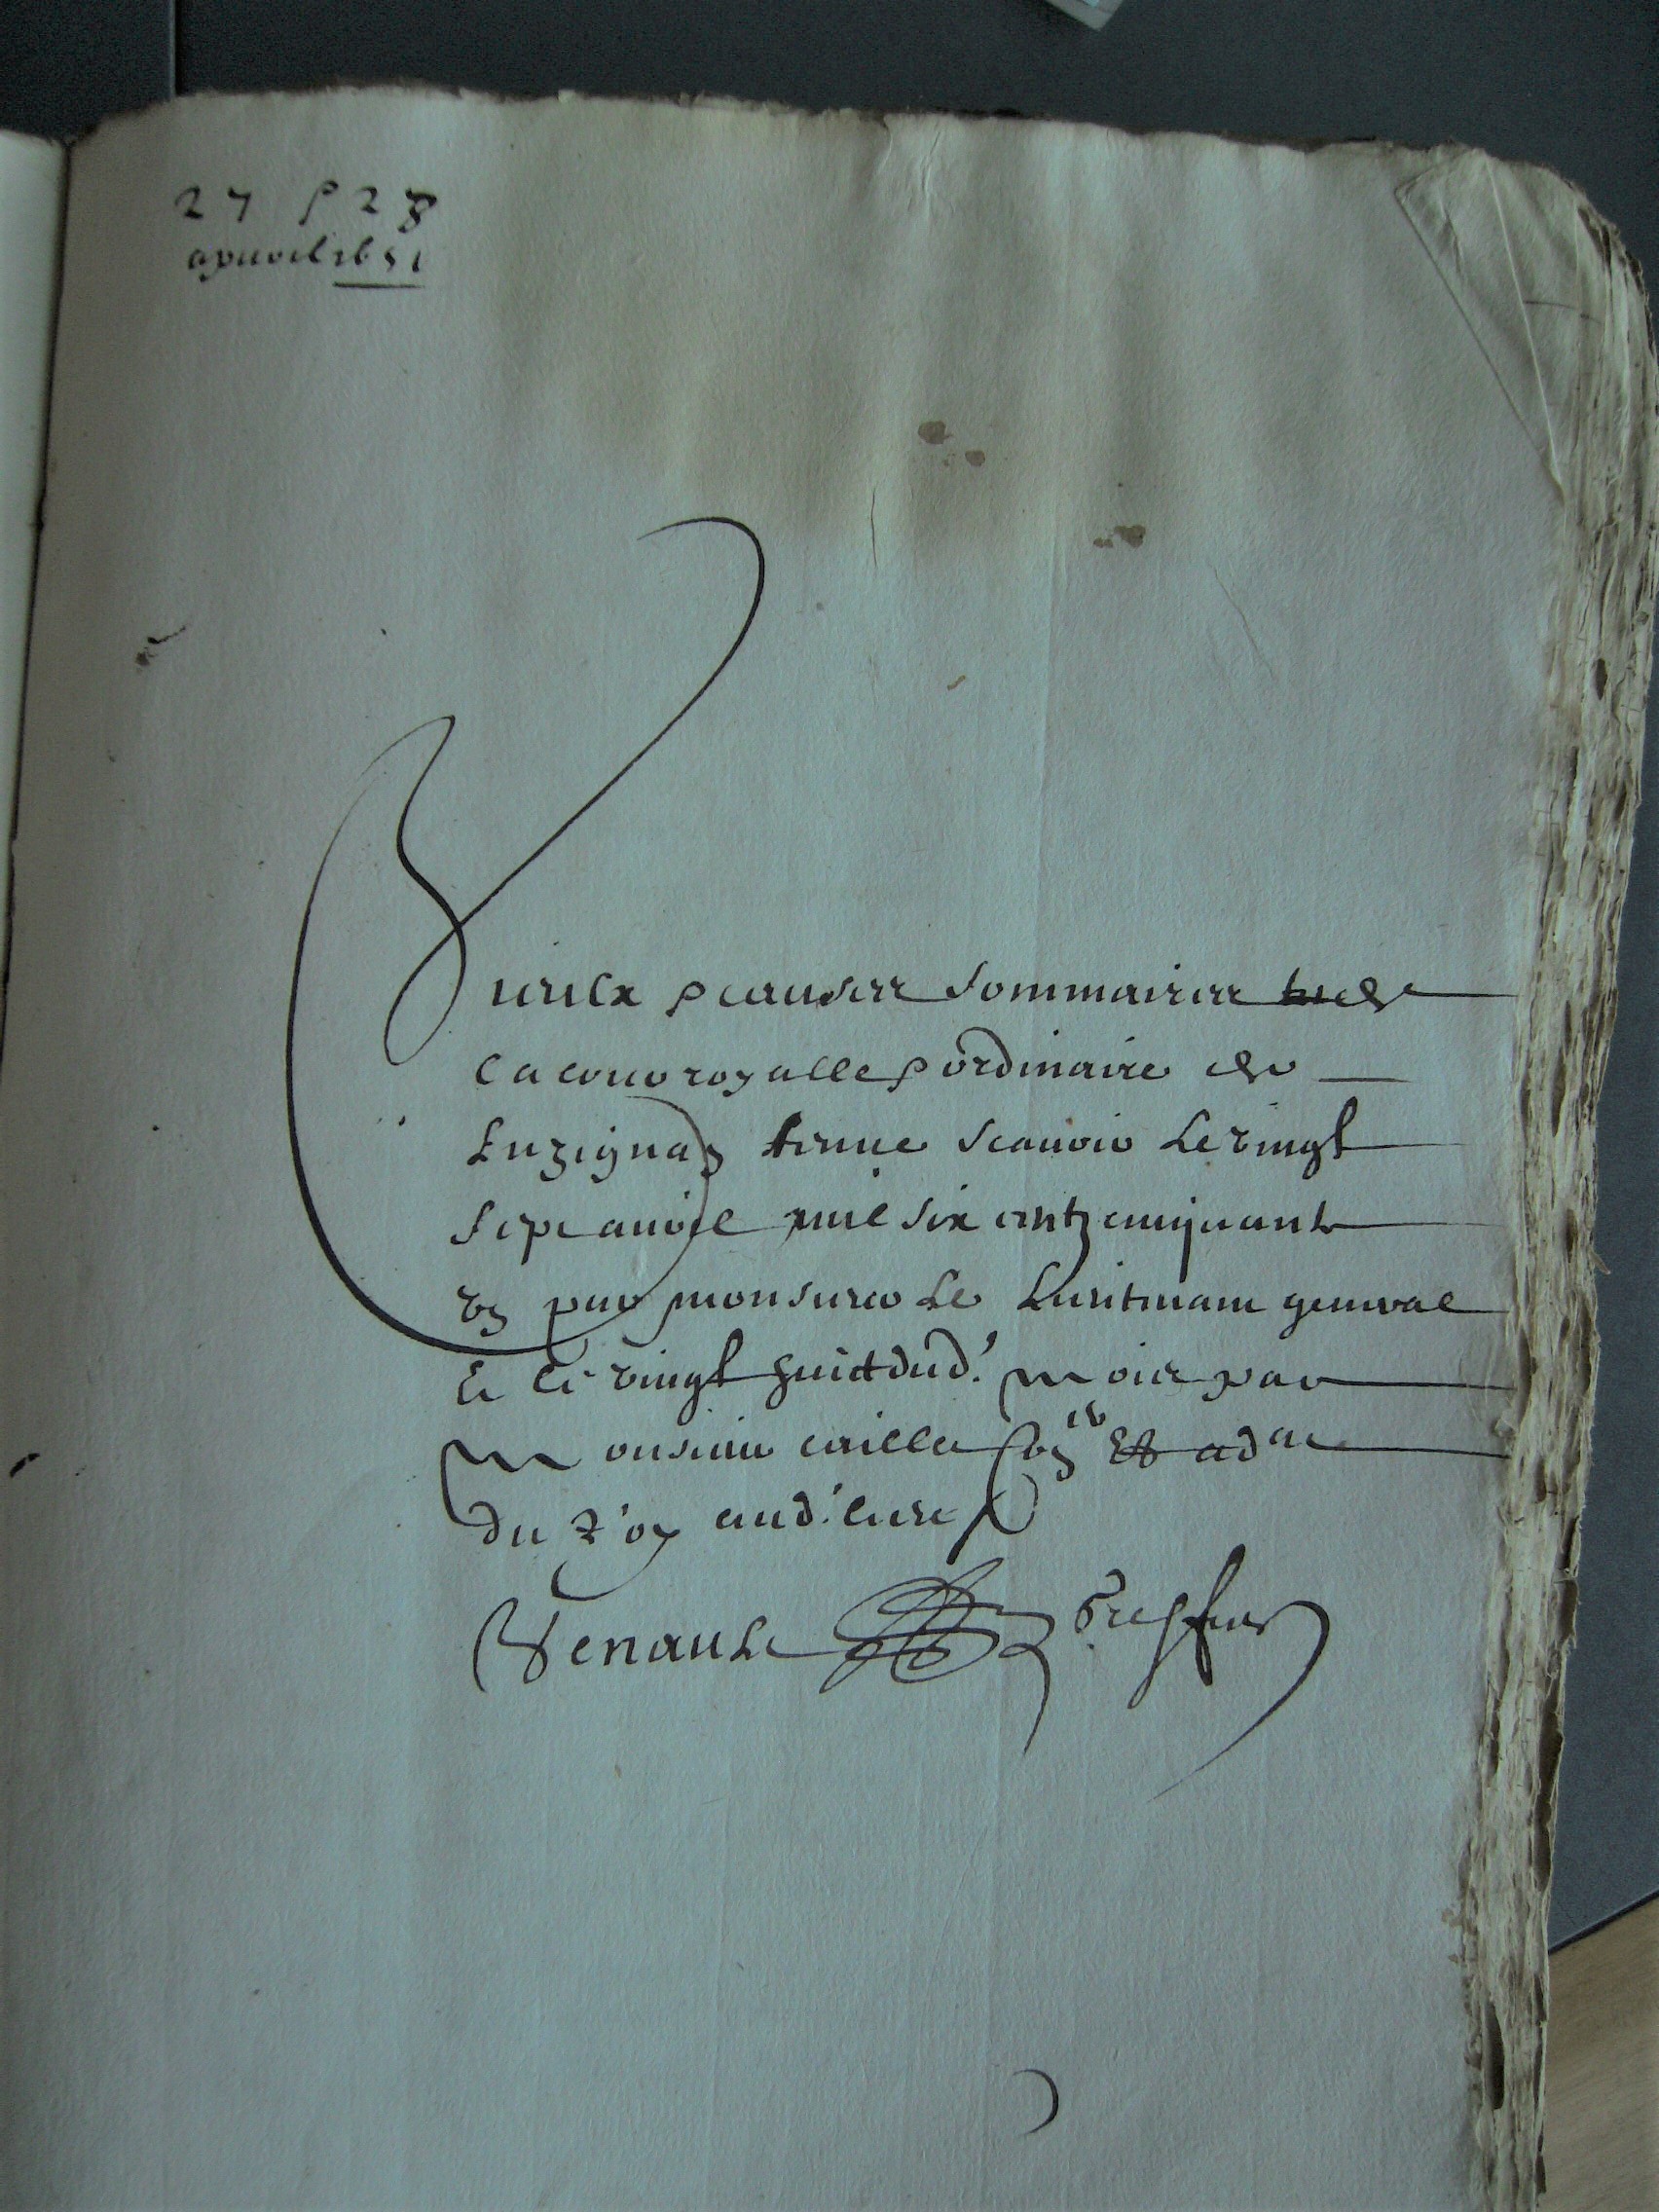 27 & 28
apvril 1651
Livre & causes sommaires de
la cour royalle & ordinaire de
Luzignan tenue scavoir le vingt
sept avril mil six centz cinquante
ung par monsieur le lieutenant general
Et le vingt huict dud. mois par
monsieur caille con.er Et ad.at
du Roy aud. lieu &
Venault Greffier